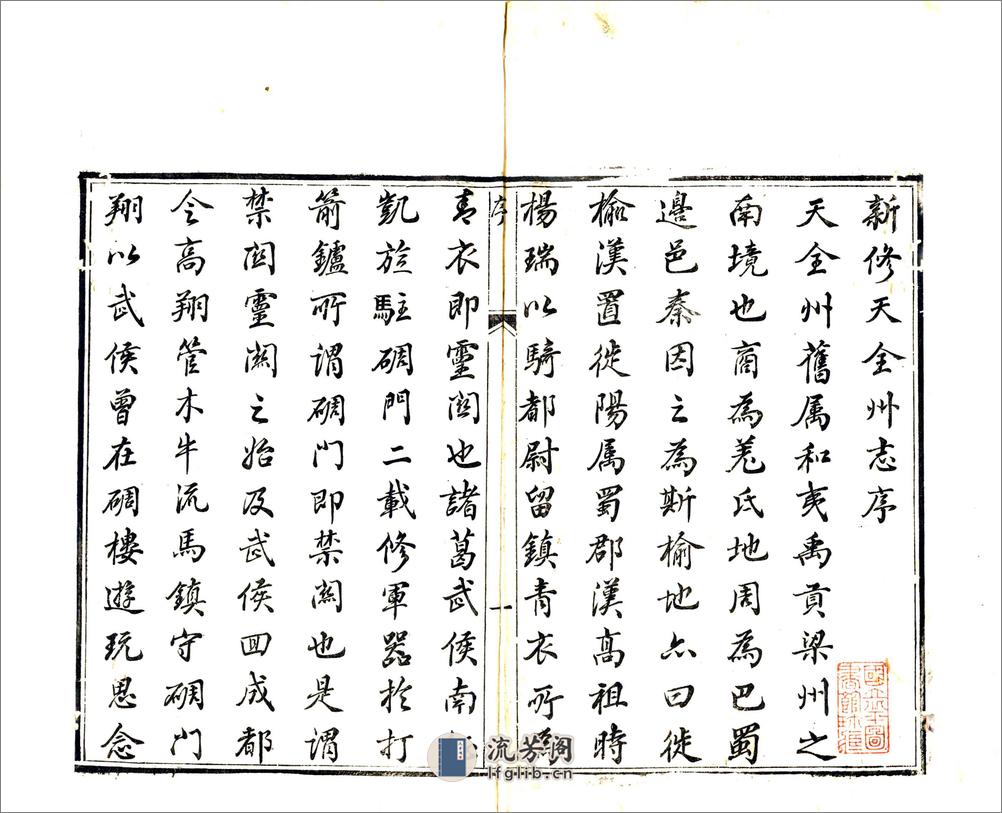 新修天全州志序
天全州舊属和夷禹貢梁州之
南境也商為羌氏地周為巴蜀
邊邑秦因之為斯榆地亦曰徙
榆漢置徙陽属蜀郡漢高祖時
楊瑞以騎都尉留鎮青衣所
序
一
青衣即靈関也諸葛武侯南
凱旋駐碉門二載修軍器於打
箭鑪所謂碉門即禁関也是謂
禁関靈関之始及武侯回成都
令高翔管木牛流馬鎮守碉門
翔以武侯曾在碉樓遊玩思念
流芳阁
lfglib.cn